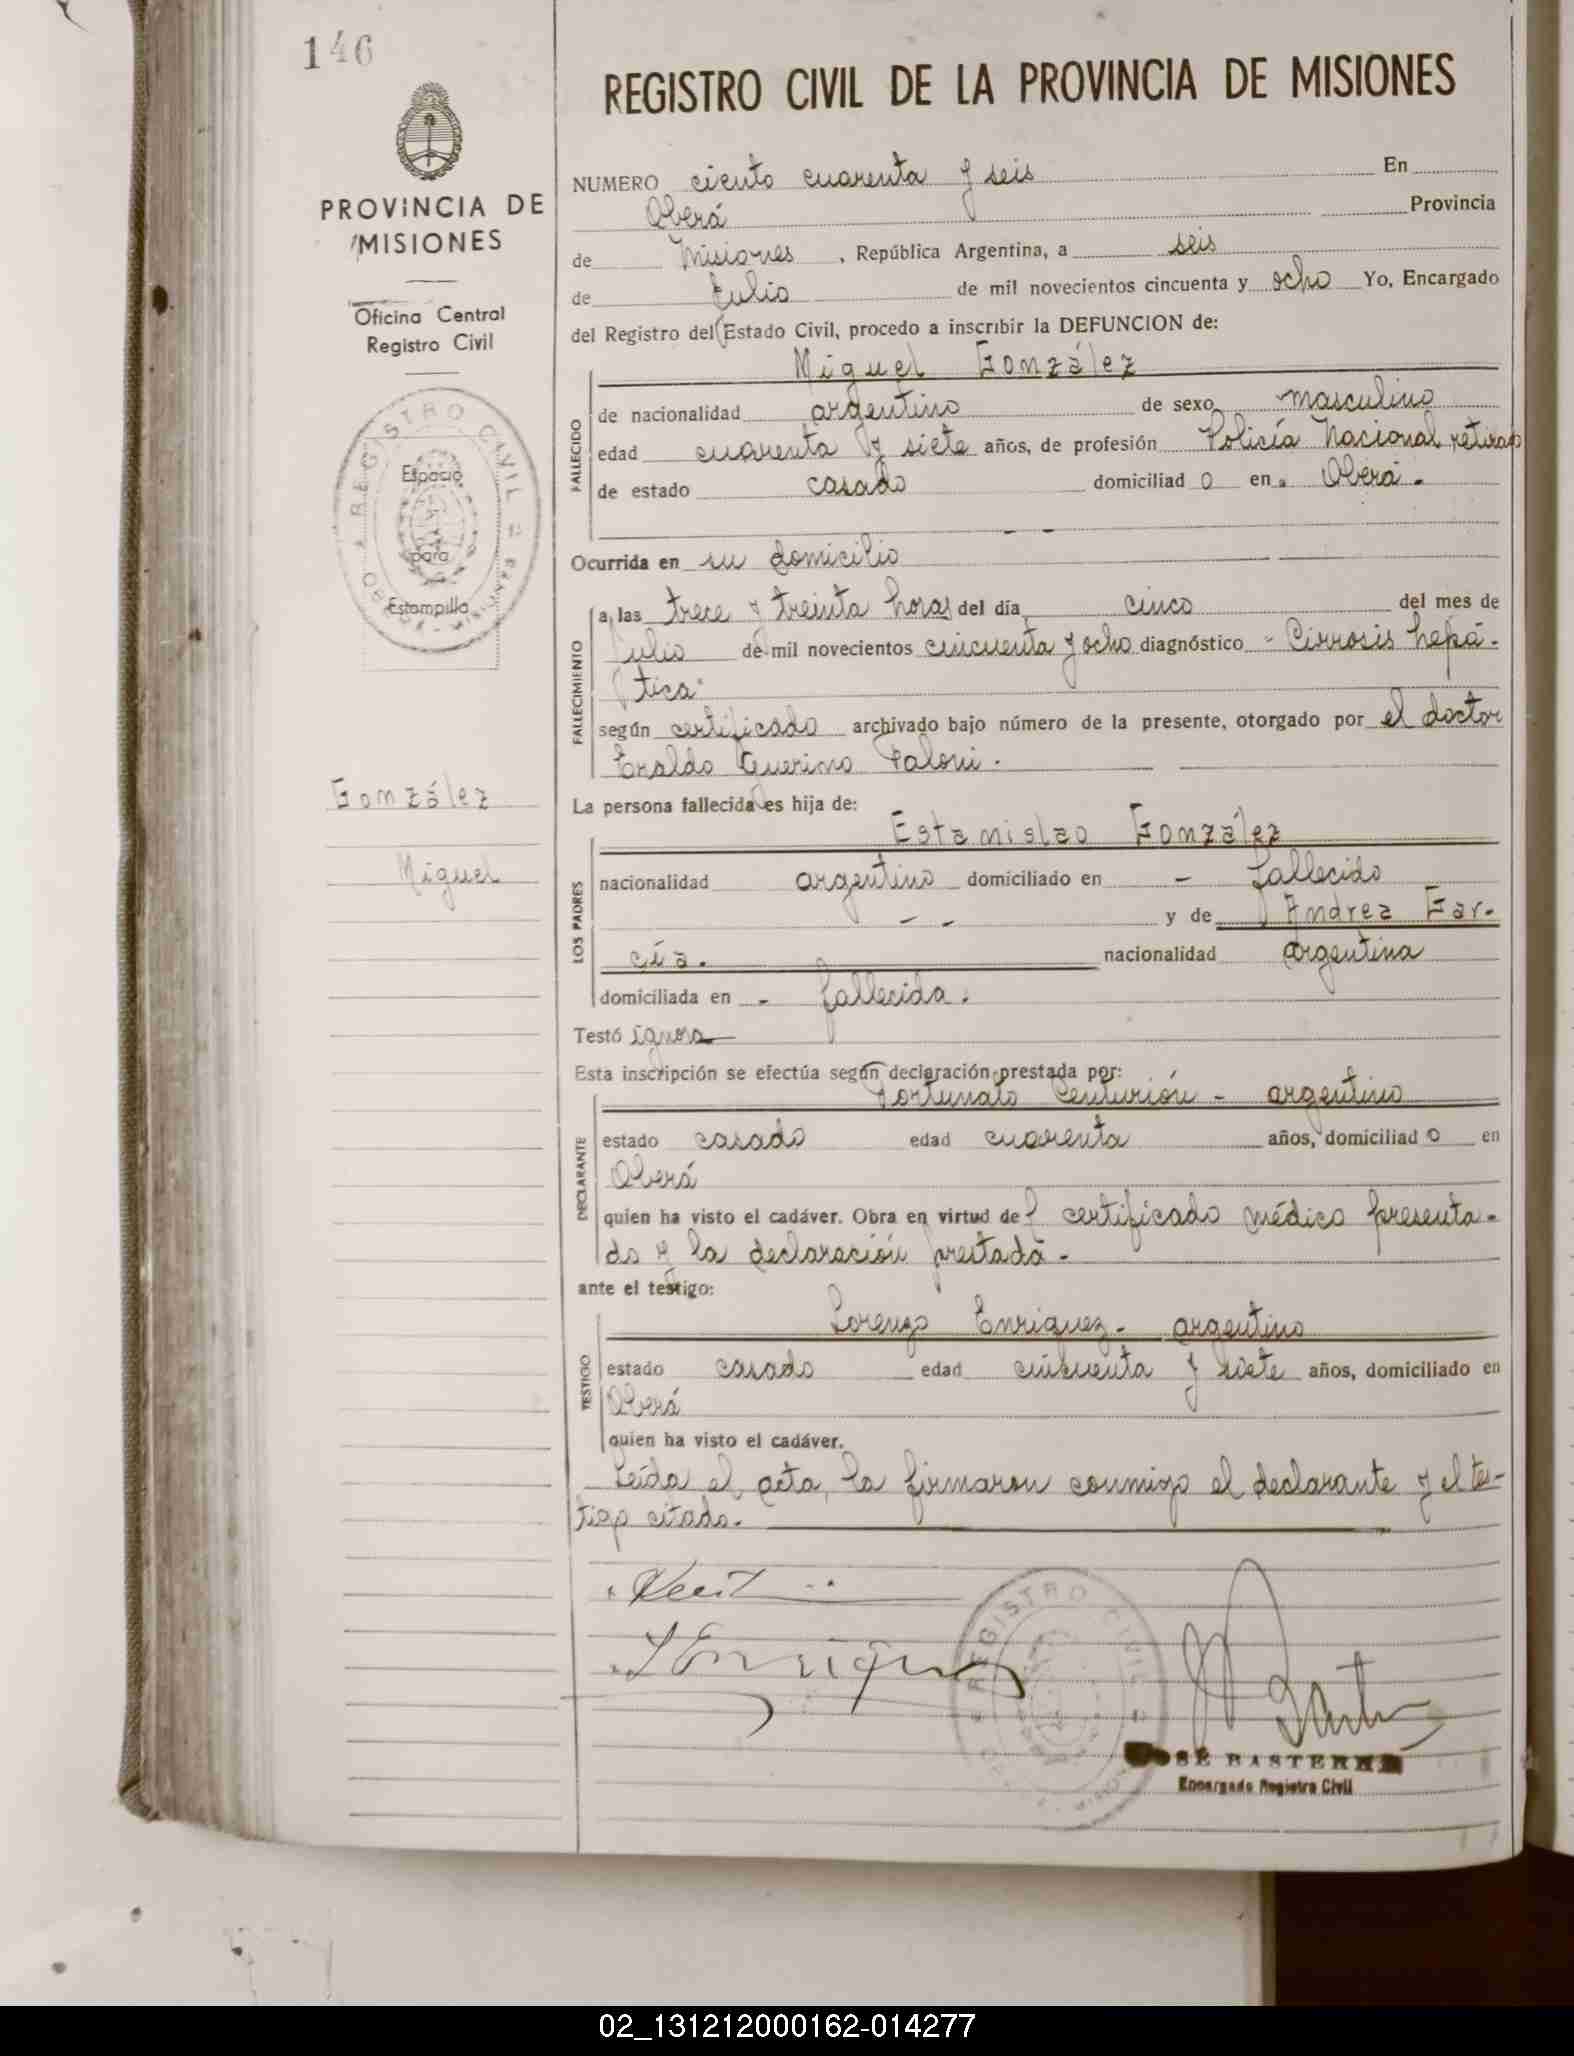 146
REGISTRO CIVIL DE LA PROVINCIA DE MISIONES
PROVINCIA DE
MISIONES
Oficina Central
Registro Civil
REGISTRO CIVIL
Espacio
para
Estampilla
González
Miguel
NUMERO ciento cuarenta y seis En
Oberá Provincia
de Misiones , República Argentina, a seis
de Julio de mil novecientos cincuenta y ocho Yo, Encargado
del Registro del Estado Civil, procedo a inscribir la DEFUNCION de:
Miguel González
FALLECIDO
de nacionalidad argentino de sexo masculino
edad cuarenta y siete años, de profesión Policía Nacional retirado
de estado casado domiciliad o en Oberá.
- -
Ocurrida en su domicilio
FALLECIMIENTO
a las trece y treinta horas del día cinco del mes de
Julio de mil novecientos cincuenta y ocho diagnóstico - Cirrosis hepá-
tica
según certificado archivado bajo número de la presente, otorgado por el doctor
Eraldo Guerino Faloni.
La persona fallecida es hija de:
LOS PADRES
Estanislao González
nacionalidad argentino domiciliado en - fallecido
- - y de Andrea Gar-
cía. nacionalidad argentina
domiciliada en - fallecida.
Testó ignora
Esta inscripción se efectúa según declaración prestada por:
DECLARANTE
Fortunato Centurión - argentino
estado casado edad cuarenta años, domiciliad o en
Oberá
quien ha visto el cadáver. Obra en virtud del certificado médico presenta-
do y la declaración prestada -
ante el testigo:
TESTIGO
Lorenzo Enriquez - argentino
estado casado edad cincuenta y siete años, domiciliado en
Oberá
quien ha visto el cadáver.
Leída el acta, la firmaron conmigo el declarante y el tes-
tigo citado.
L Enriquez
REGISTRO CIVIL
JOSÉ BASTERRA
Encargado Registro Civil
02_131212000162-014277